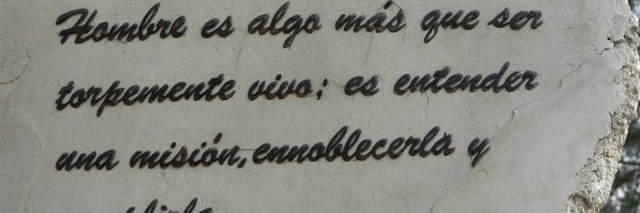 Hombre es algo más que ser
torpemente vivo; es entender
una misión, ennoblecerla y